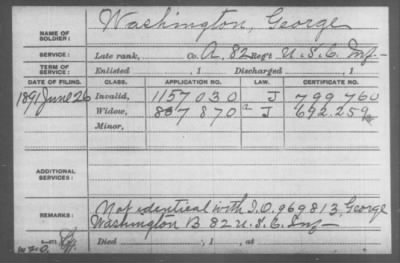 NAME OF SOLDIER: Washington, George
SERVICE: Late rank, Co. A, 82 Reg't U. S. C. Inf.
TERM OF SERVICE: Enlisted , 1 Discharged , 1
DATE OF FILING. CLASS. APPLICATION NO. LAW. CERTIFICATE NO.
1891 June 26 Invalid, 1157 030 J 799 760
Widow, 887 870 J 692.259
Minor,
ADDITIONAL SERVICES:
REMARKS: Not identical with I.O. 969813, George
Washington B 82 U.S.C. Inf.
Died , 1 , at